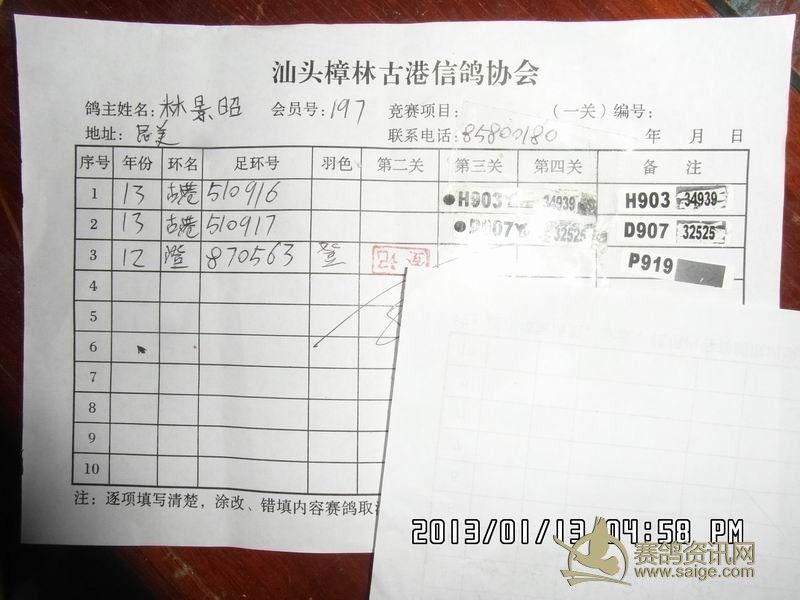 汕头樟林古港信鸽协会
鸽主姓名：林景昭 会员号：197 竞赛项目： （一关）编号：
地址：民美 联系电话：85800180 年 月 日
序号 年份 环名 足环号 羽色 第二关 第三关 第四关 备 注
1 13 古港 510916 H903 34939 H903 34939
2 13 古港 510917 D907 32525 D907 32525
3 12 澄 870563 P919
4
5
6
7
8
9
10
注：逐项填写清楚，涂改、错填内容赛鸽取
2013/01/13 04:58 PM
赛鸽资讯网
www.saige.com